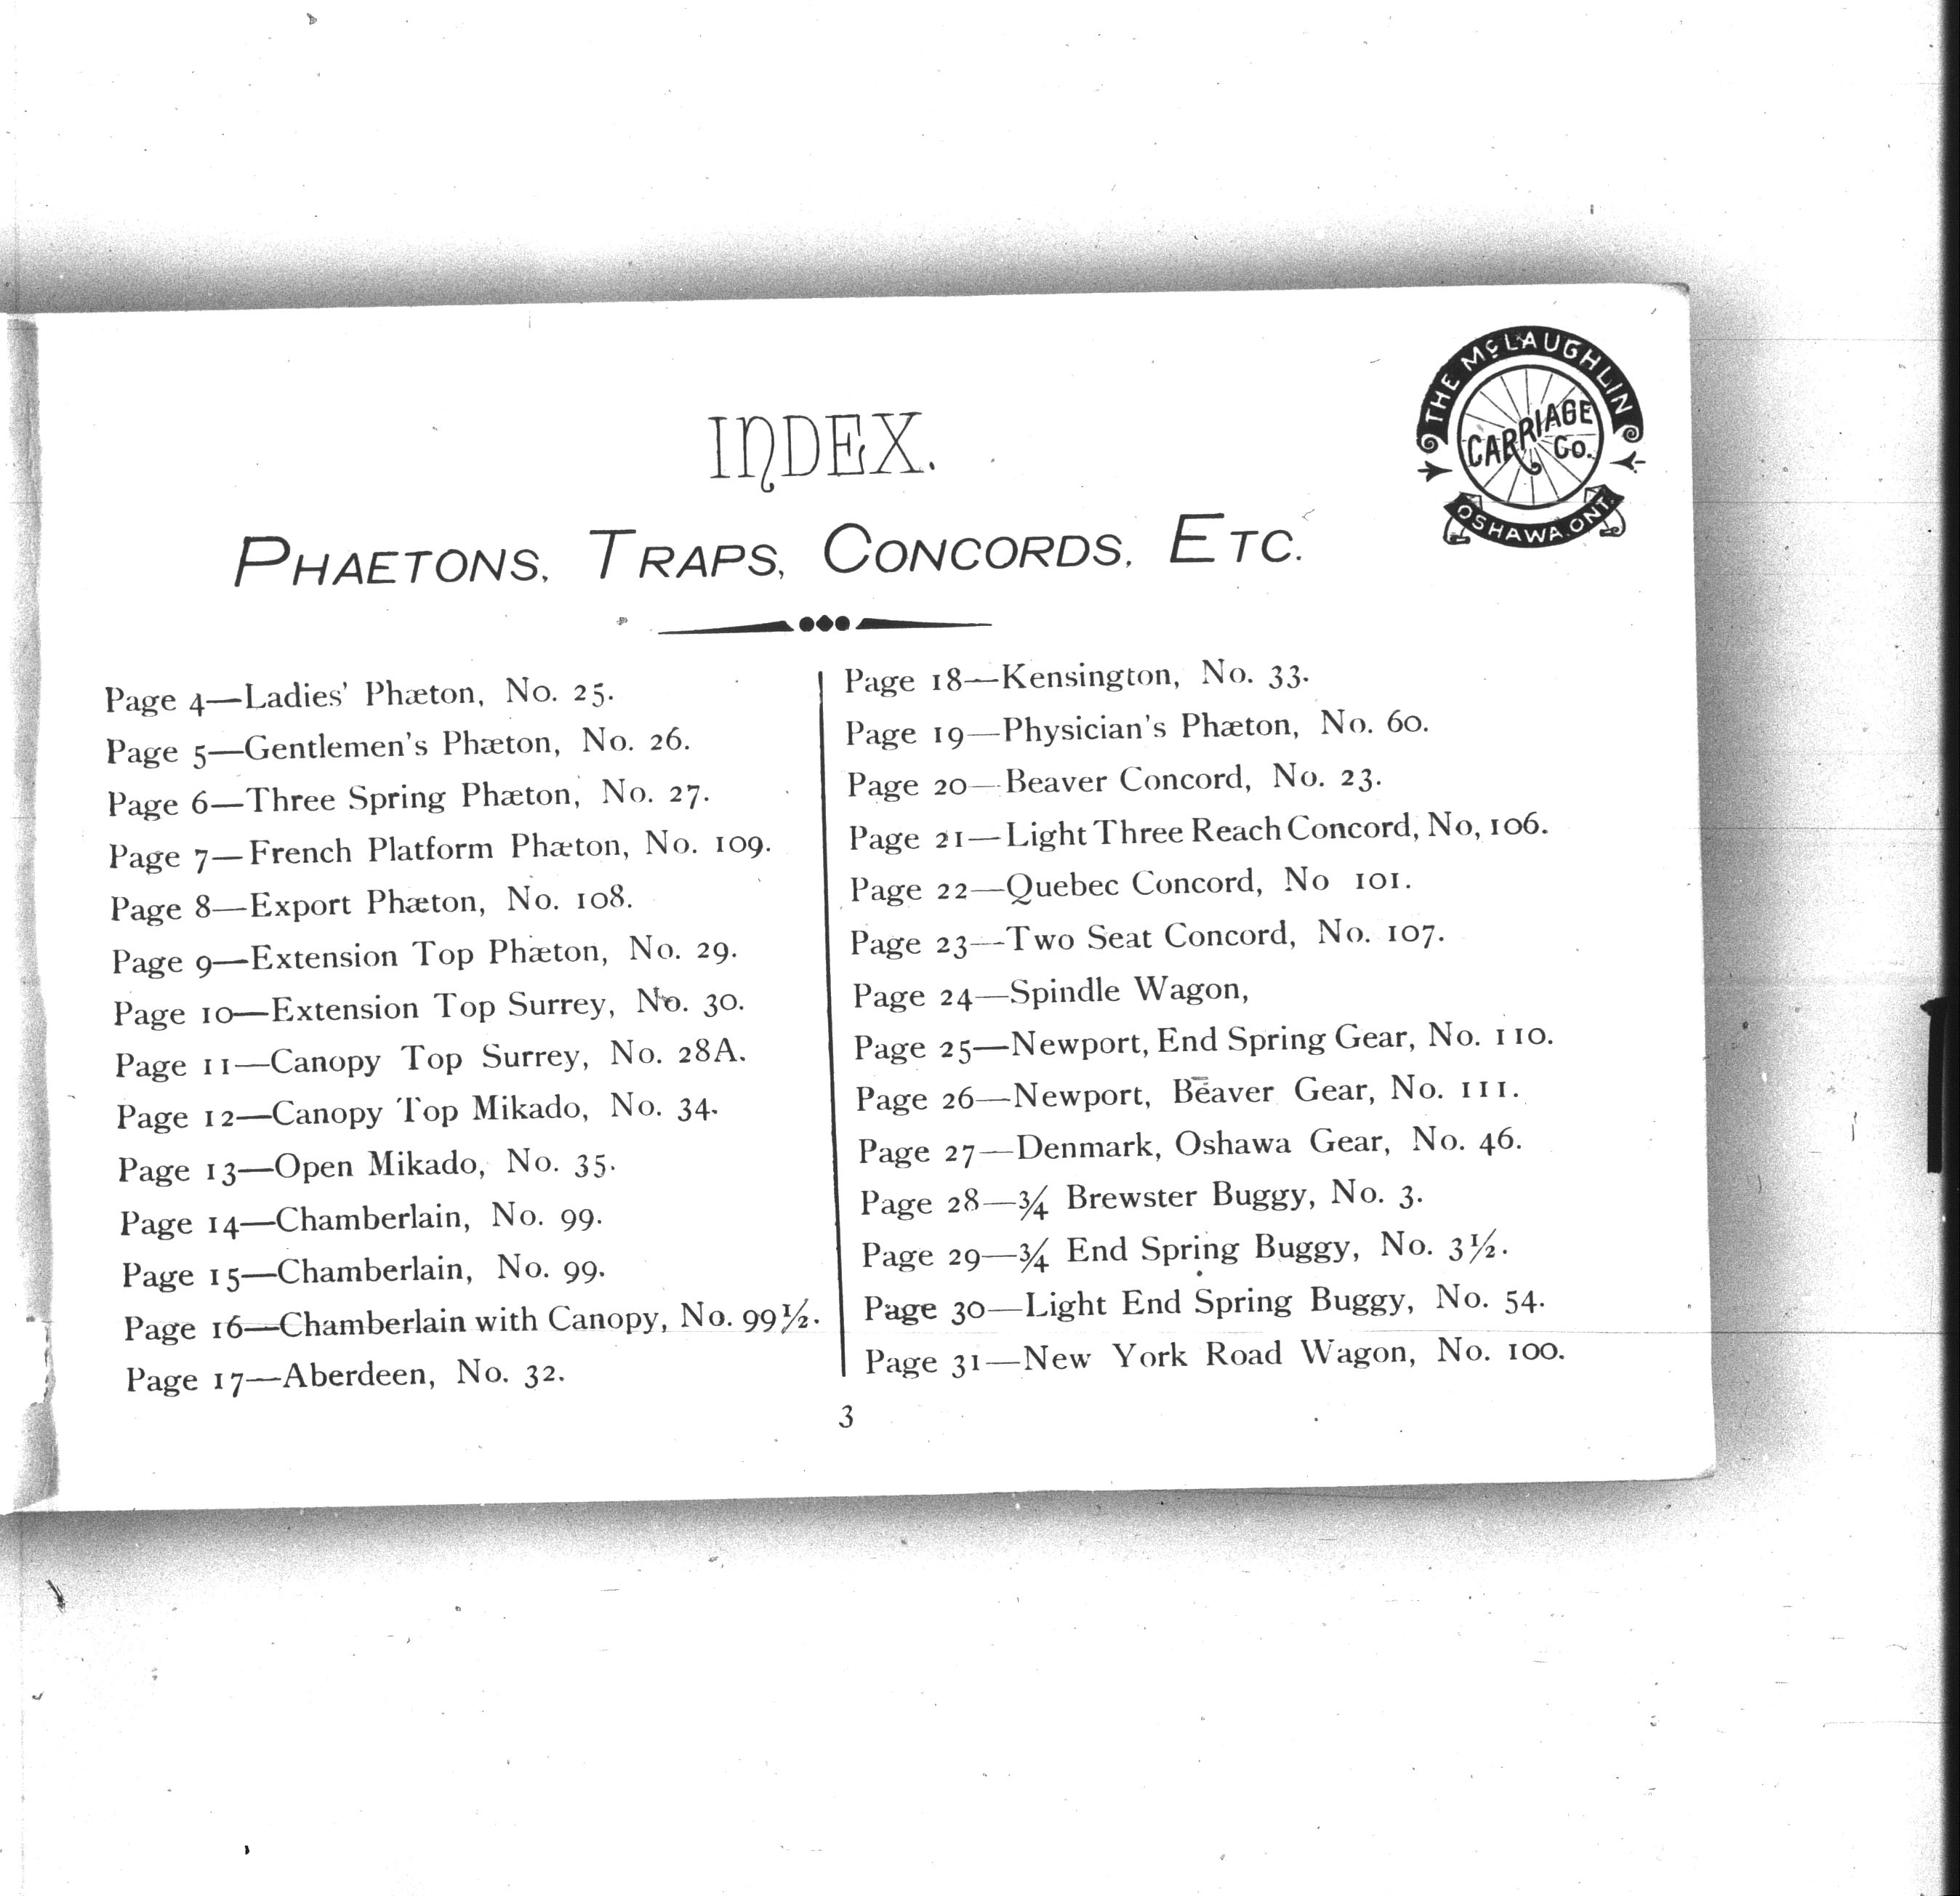 THE McLAUGHLIN
CARRIAGE
Co.
OSHAWA. ONT.
INDEX.
PHAETONS, TRAPS, CONCORDS, ETC.
Page 4—Ladies' Phæton, No. 25.
Page 5—Gentlemen's Phæton, No. 26.
Page 6—Three Spring Phæton, No. 27.
Page 7—French Platform Phæton, No. 109.
Page 8—Export Phæton, No. 108.
Page 9—Extension Top Phæton, No. 29.
Page 10—Extension Top Surrey, No. 30.
Page 11—Canopy Top Surrey, No. 28A.
Page 12—Canopy Top Mikado, No. 34.
Page 13—Open Mikado, No. 35.
Page 14—Chamberlain, No. 99.
Page 15—Chamberlain, No. 99.
Page 16—Chamberlain with Canopy, No. 99½.
Page 17—Aberdeen, No. 32.
Page 18—Kensington, No. 33.
Page 19—Physician's Phæton, No. 60.
Page 20—Beaver Concord, No. 23.
Page 21—Light Three Reach Concord, No, 106.
Page 22—Quebec Concord, No 101.
Page 23—Two Seat Concord, No. 107.
Page 24—Spindle Wagon,
Page 25—Newport, End Spring Gear, No. 110.
Page 26—Newport, Beaver Gear, No. 111.
Page 27—Denmark, Oshawa Gear, No. 46.
Page 28—¾ Brewster Buggy, No. 3.
Page 29—¾ End Spring Buggy, No. 3½.
Page 30—Light End Spring Buggy, No. 54.
Page 31—New York Road Wagon, No. 100.
3